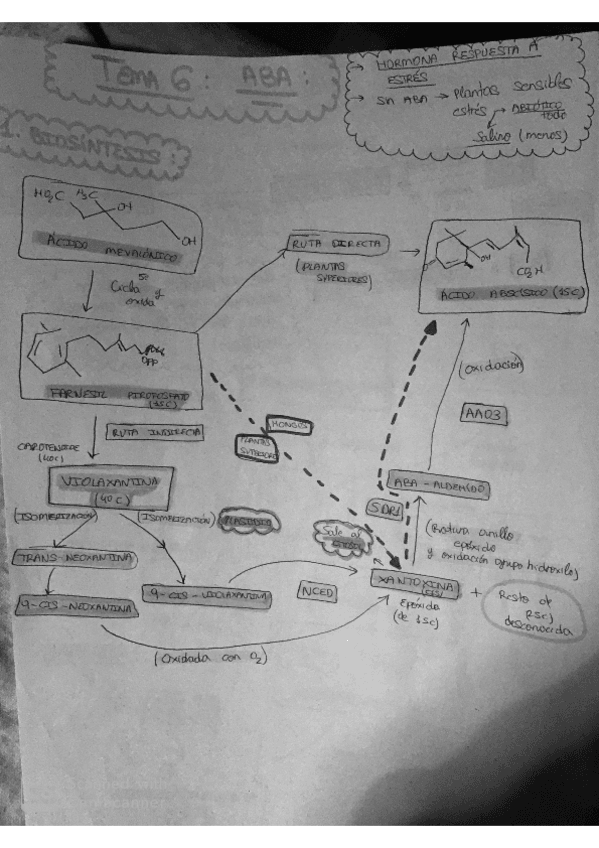 TEMA 6: ABA:
→ HORMONA RESPUESTA A
ESTRÉS
→ SIN ABA → Plantas sensibles
estrés → ABIÓTICO
todo
Salino (menos)
1. BIOSÍNTESIS:
HO₂C H₃C OH
OH
ÁCIDO MEVALÓNICO
RUTA DIRECTA
(PLANTAS
SUPERIORES)
OH
CO₂H
ÁCIDO ABSCÍSICO (15C)
Se
Cicla y
oxida
OPP
FARNESIL PIROFOSFATO
(15C)
(oxidación)
AAO3
HONGOS
PLANTAS
SUPERIORES
RUTA INDIRECTA
CAROTENOIDE
(40C)
VIOLAXANTINA
(40C)
ABA-ALDEHÍDO
SDR1
(ISOMERIZACIÓN)
(ISOMERIZACIÓN)
PLASTIDIO
Sale al
(Rotura anillo
epóxido
y oxidación grupo hidroxilo)
TRANS-NEOXANTINA
9-CIS-NEOXANTINA
9-CIS-VIOLAXANTINA
NCED
XANTOXINA
(CIS)
Epóxido
(de 15C)
+ Resto de
25C
desconocida
(Oxidada con O₂)